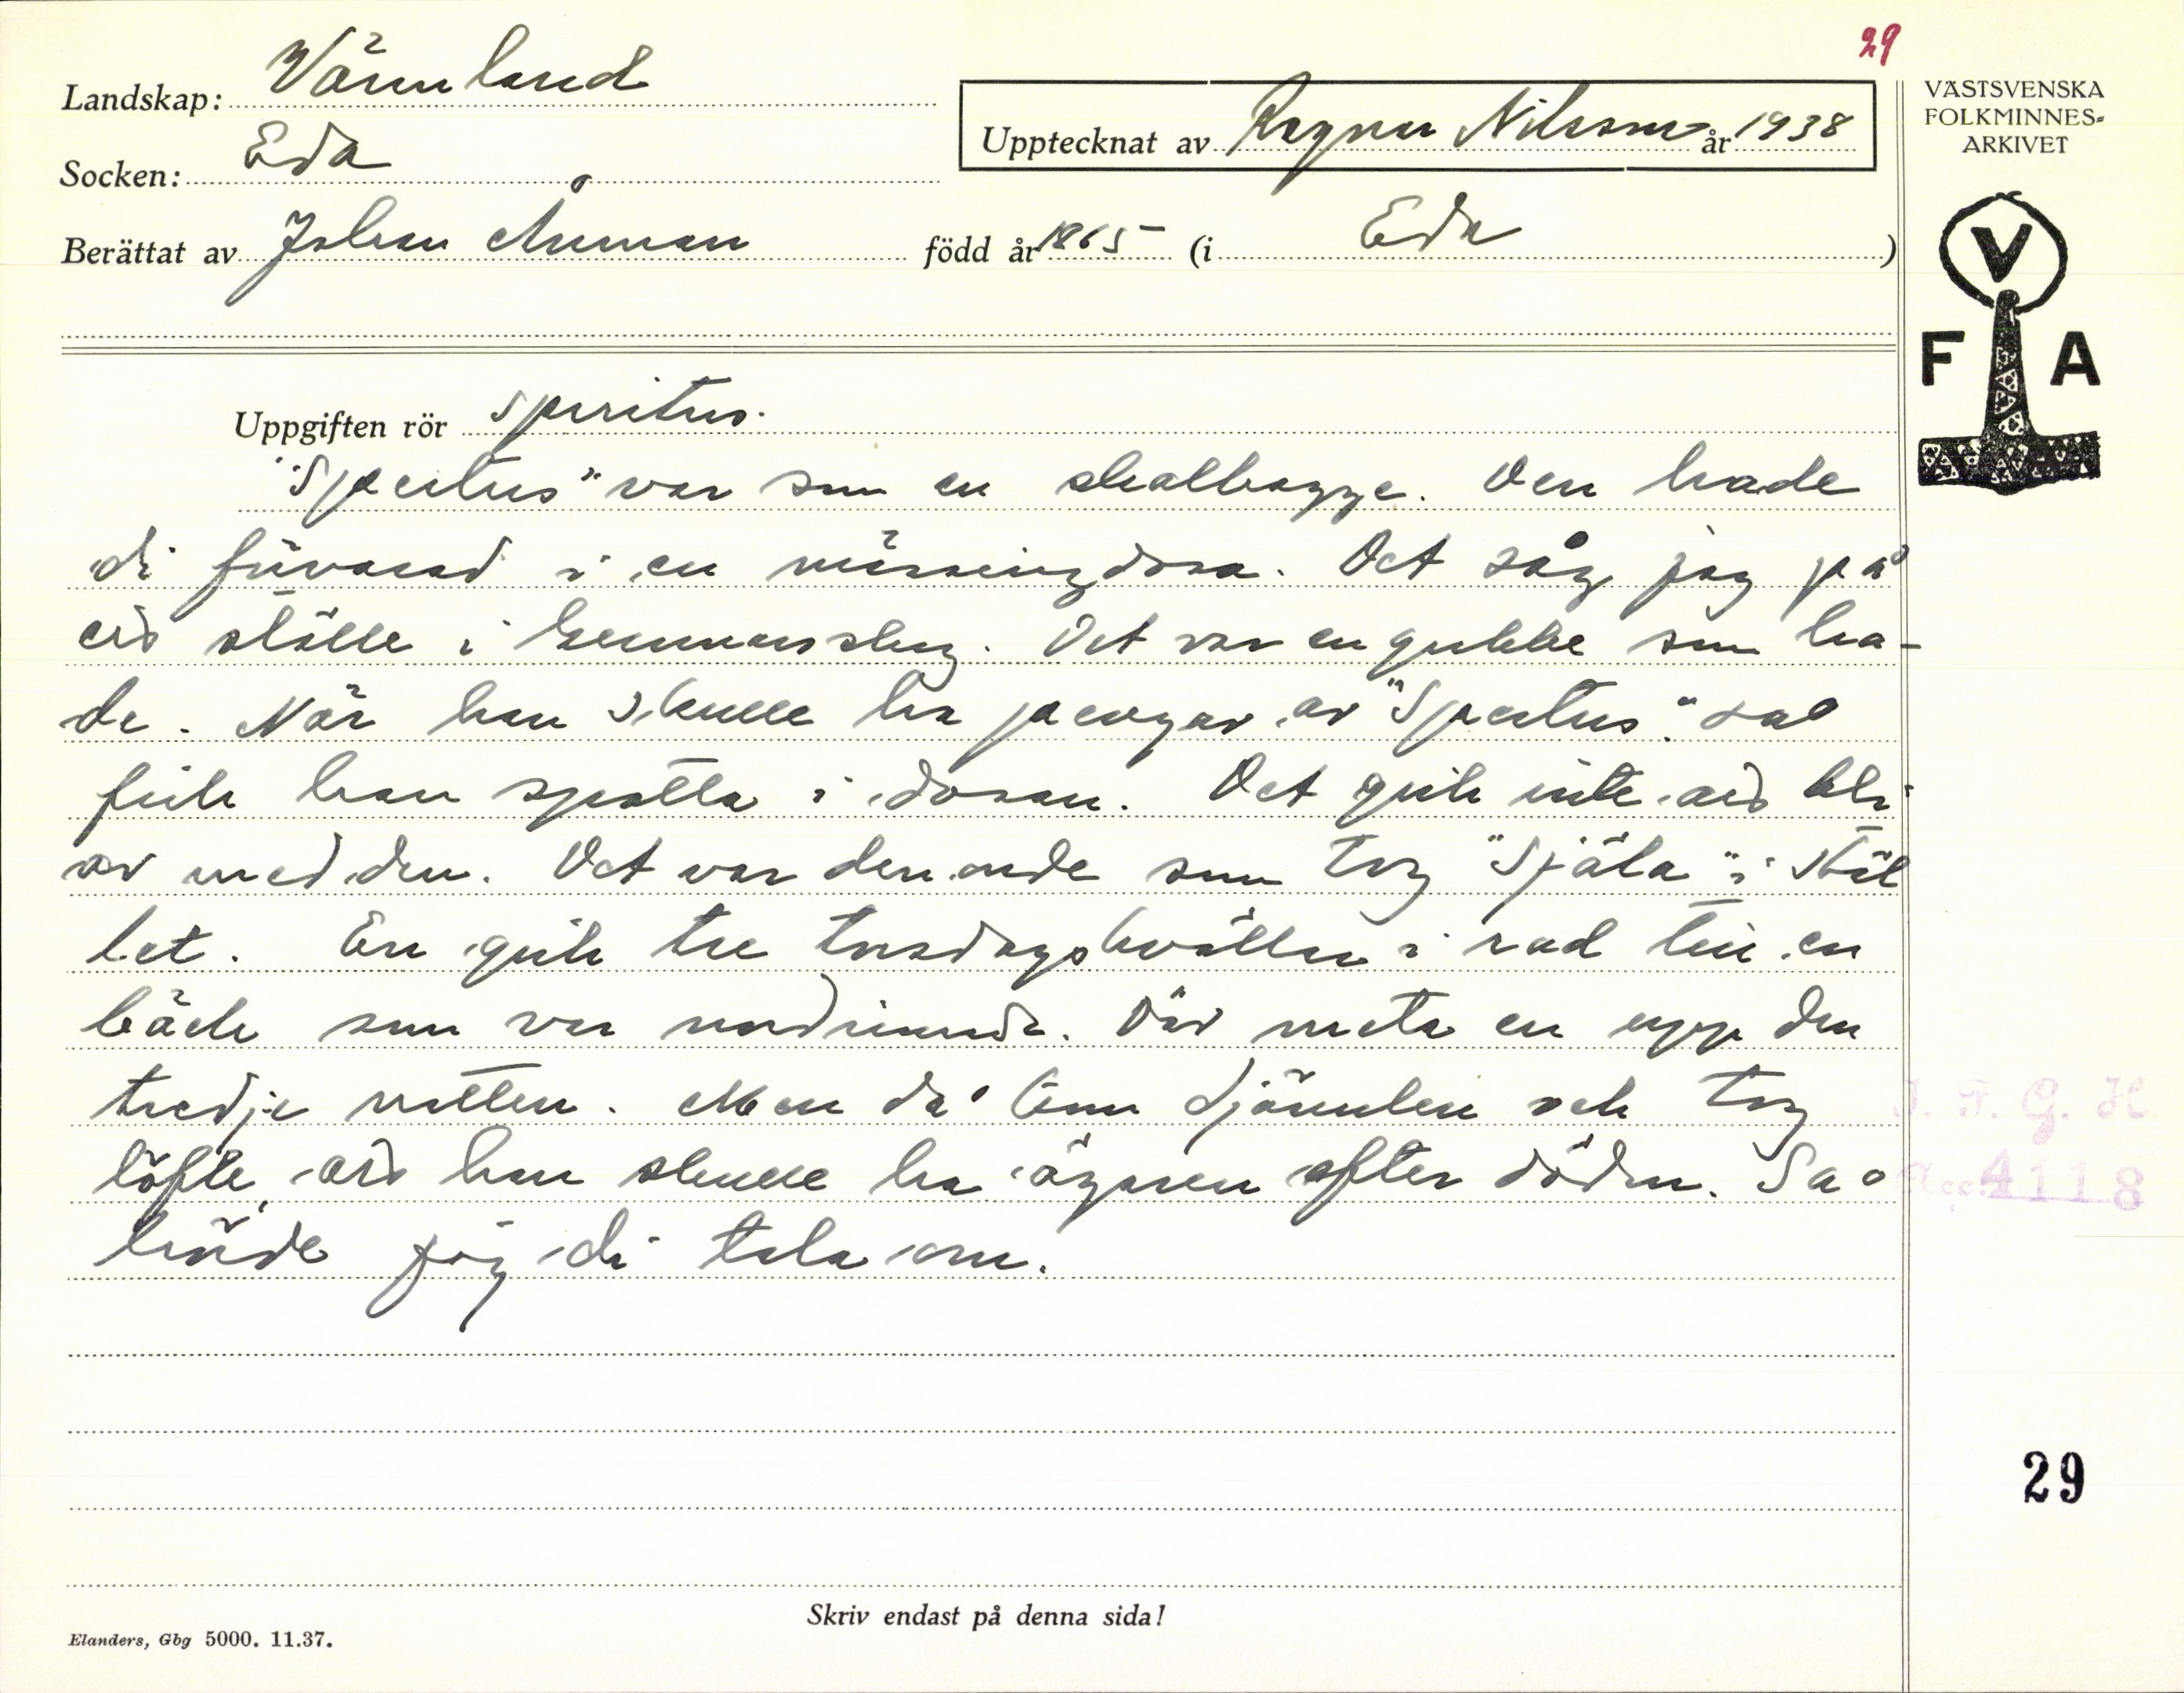 29
Landskap: Värmland
Socken: Eda
Upptecknat av Ragnar Nilsson år 1938
Berättat av Johan Åmman född år 1865 (i Eda)
VÄSTSVENSKA
FOLKMINNES-
ARKIVET
V
F A
Uppgiften rör spiritus.
"Spertus" var som en skalbagge. Den hade
di förvarad i en mässingdosa. Det såg jag på
ett ställe i Gunnarskog. Det var en gubbe som ha-
de. När han skulle ha pengar av "Spertus" så
fick han spotta i dosan. Det gick inte att bli
av med den. Det var den onde som tog "Själa" i stäl
let. En gick tre torsdagskvällar i rad till en
bäck som var nordrinnade. Där meta en upp den
tredje natten. Men då kom djävulen och tog
löfte, att han skulle ha ägaren efter döden. Så
hörde jag di tala om.
I. F. G. H.
Acc. 4118
29
Skriv endast på denna sida!
Elanders, Gbg 5000. 11.37.